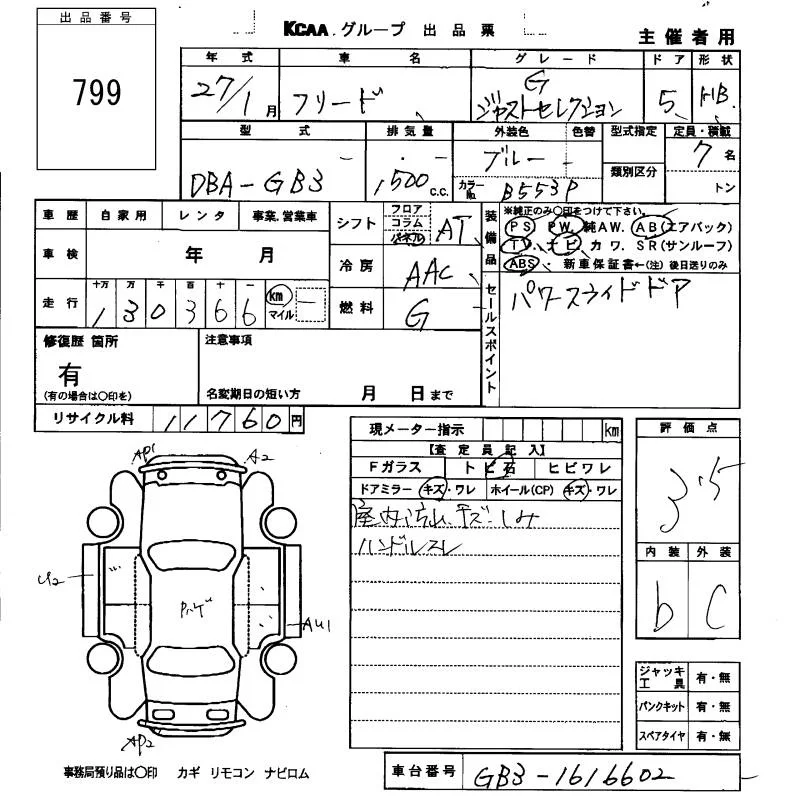 出品番号
799
KCAA.グループ 出品票
主催者用
年式 車名 グレード ドア 形状
27/1月 フリード G ジャストセレクション 5 HB.
型式 排気量 外装色 色替 型式指定 定員・積載
DBA-GB3 1,500c.c. ブルー - 7名
カラーNo. B553P 類別区分 トン
車歴 自家用 レンタ 事業.営業車
車検 年 月
走行 十万 万 千 百 十 一
1 3 0 3 6 6 km マイル
シフト フロア コラム パネル AT
冷房 AAC
燃料 G
装備品
※純正のみ○印をつけて下さい。
PS PW. 純AW. AB(エアバック)
TV. ナビ. カワ. SR(サンルーフ)
ABS. 新車保証書←(注) 後日送りのみ
セールスポイント
パワースライドドア
修復歴 箇所
有
(有の場合は○印を)
注意事項
名変期日の短い方 月 日まで
リサイクル料 11760円
現メーター指示 km
【査定員記入】
Fガラス トビ石 ヒビワレ
ドアミラー キズ・ワレ ホイール(CP) キズ・ワレ
室内汚れ.キズ.しみ
ハンドルスレ
評価点
3.5
内装 外装
b C
ジャッキ工具 有・無
パンクキット 有・無
スペアタイヤ 有・無
AP1 A2
U2
AU1
AP2
事務局預り品は○印 カギ リモコン ナビロム
車台番号 GB3-1616602